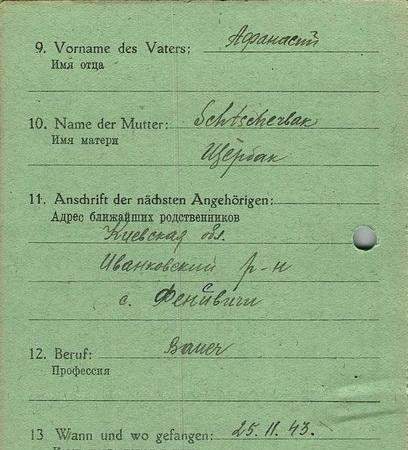 9. Vorname des Vaters: Афанасий
Имя отца
10. Name der Mutter: Schtscherbak
Имя матери
Щербак
11. Anschrift der nächsten Angehörigen:
Адрес ближайших родственников
Киевская обл.
Иванковский р-н
с. Феневичи
12. Beruf: Bauer
Профессия
13 Wann und wo gefangen: 25.11.43.